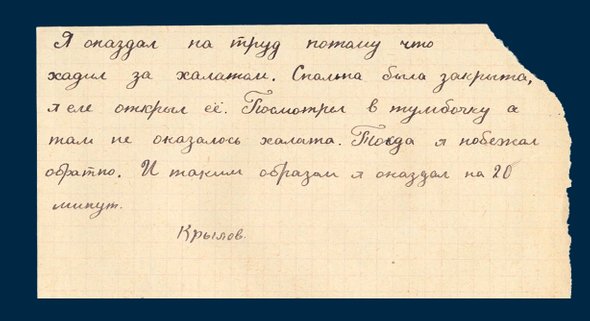 Я опаздал на труд потому что
хадил за халатам. Спальна была закрыта,
я еле открыл её. Посмотрел в тумбочку а
там не оказалось халата. Тогда я побежал
обратно. И таким образам я опаздал на 20
минут.
Крылов.